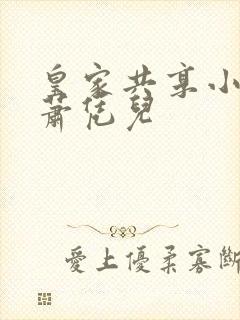 皇家共享小
蕭凭兒
愛上優柔寡斷